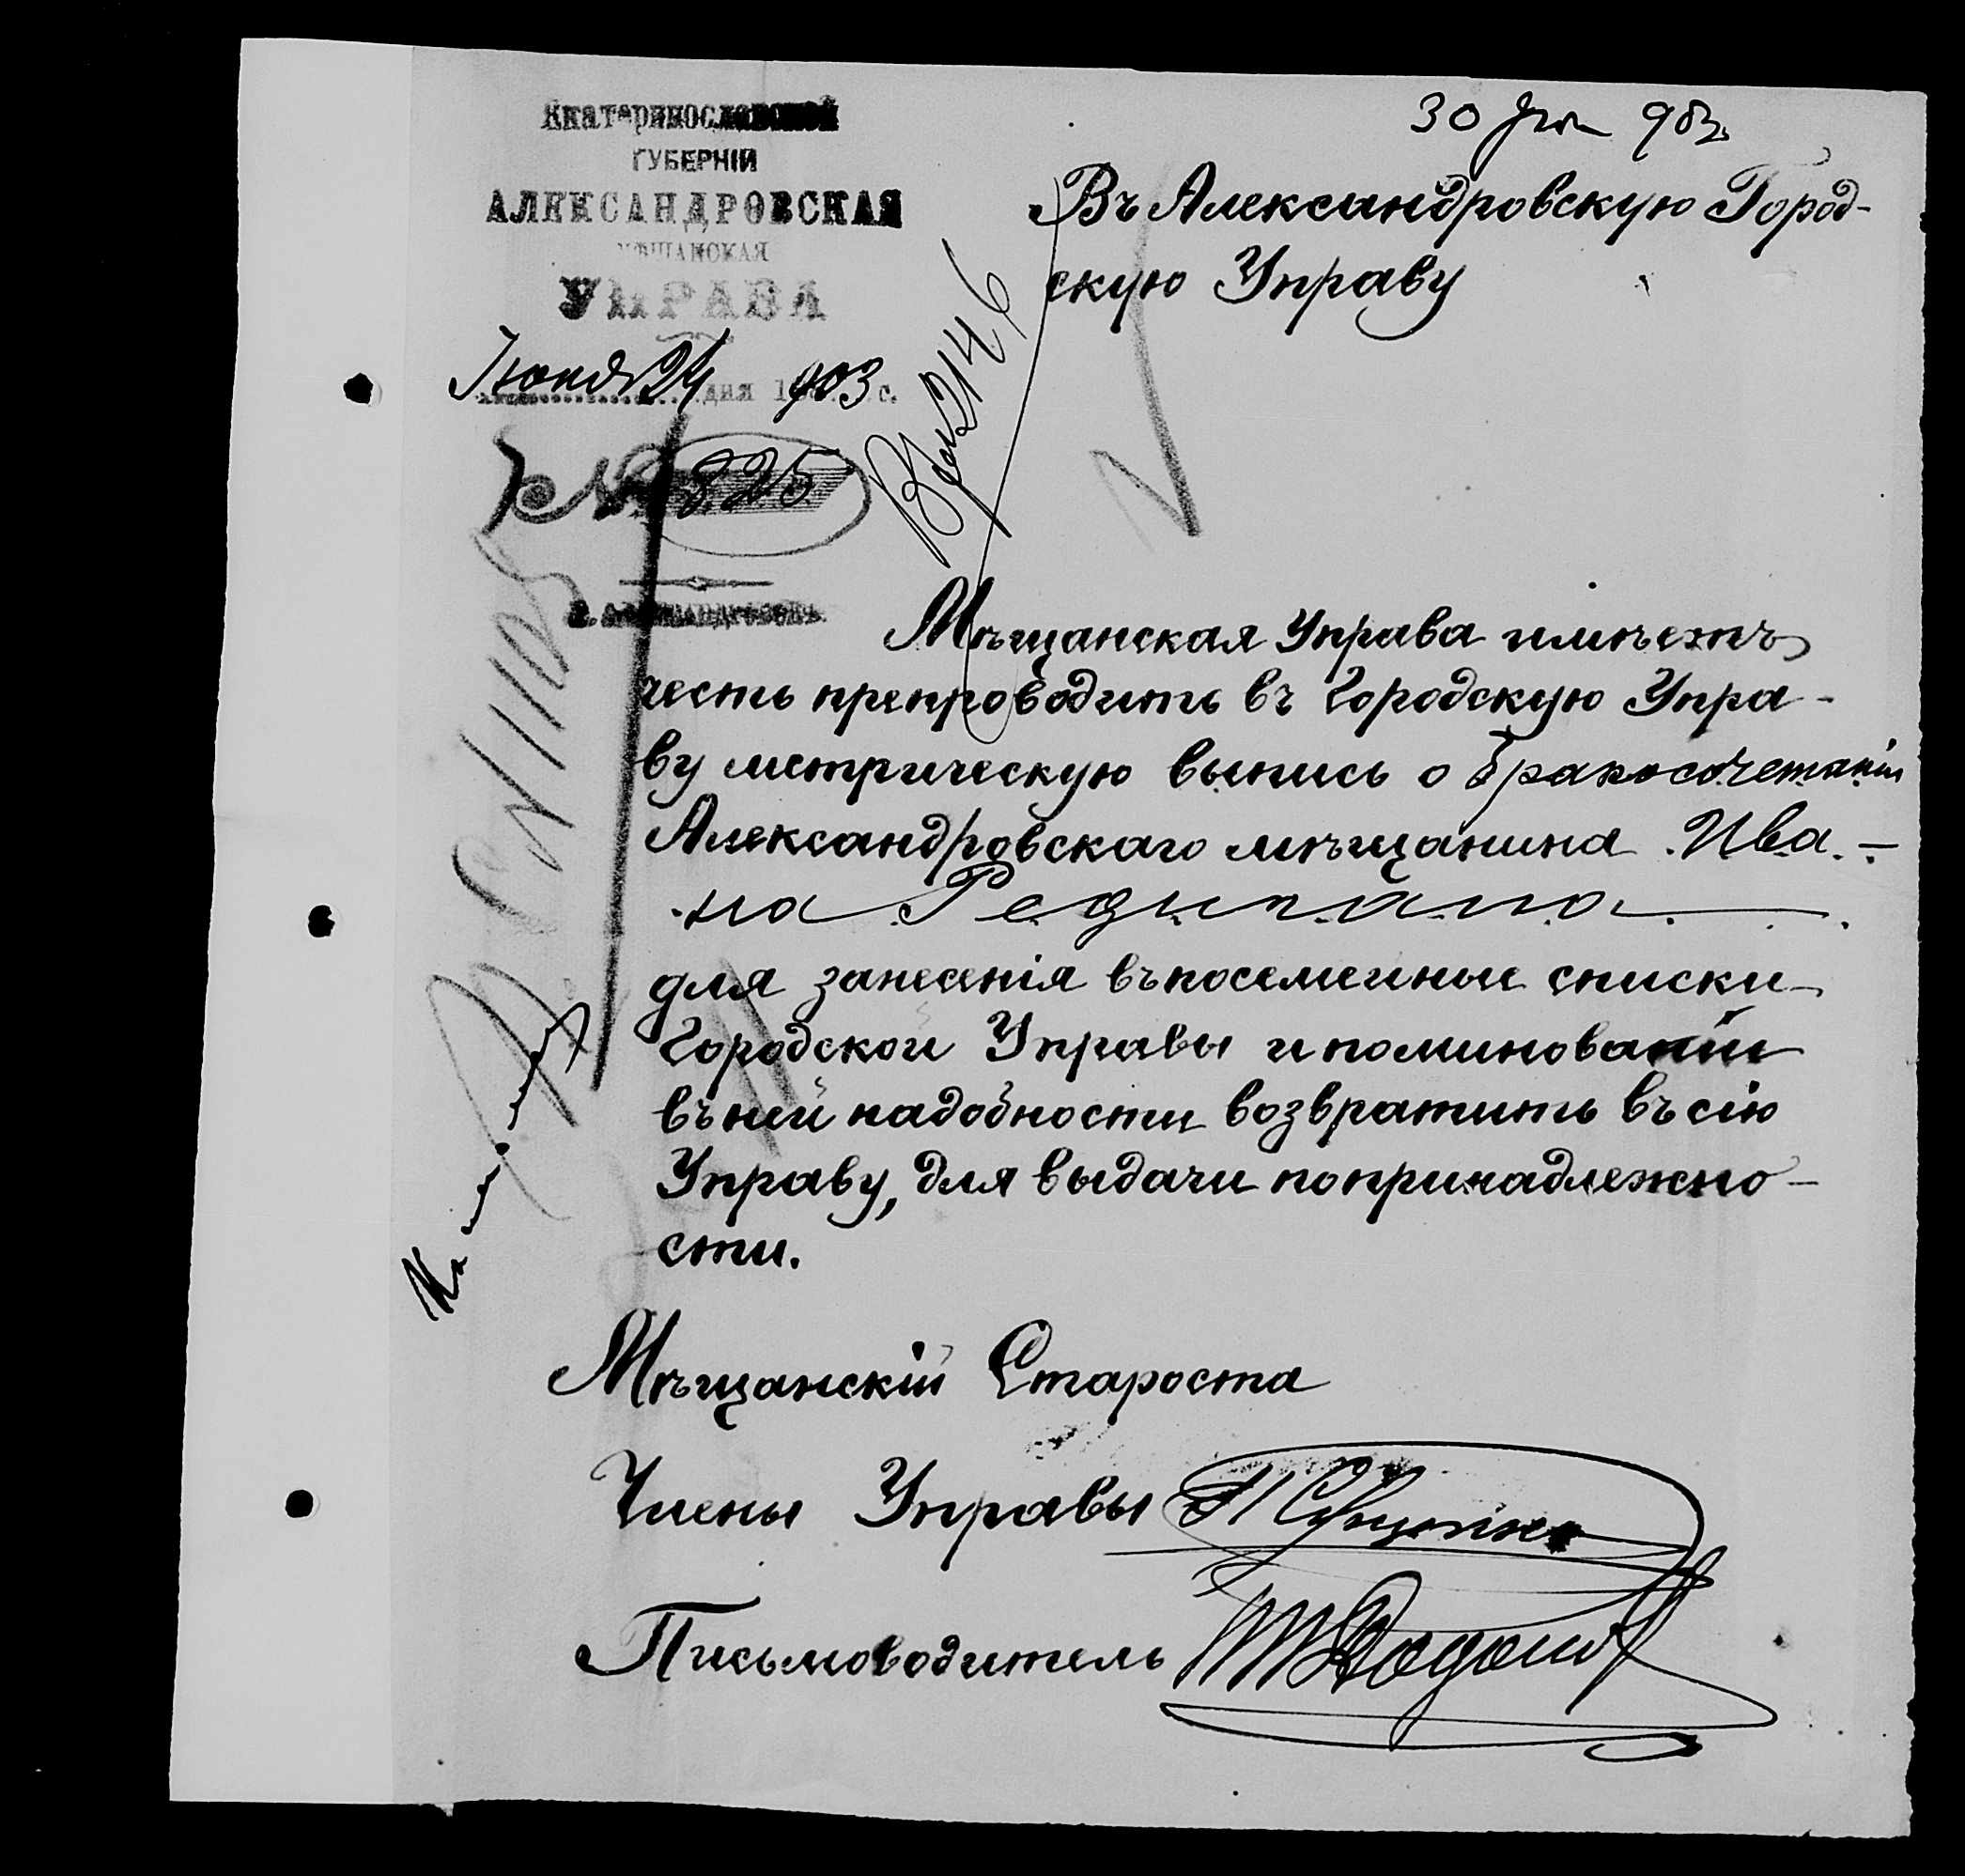 Екатеринославской
ГУБЕРНІИ
АЛЕКСАНДРОВСКАЯ
МѢЩАНСКАЯ
УПРАВА
Іюня 24 дня 1903
№ 825
г. Александровскъ.
30 903
Въ Александровскую Город-
скую Управу
2146
Мѣщанская Управа имѣетъ
честь препроводить въ Городскую Упра-
ву метрическую выпись о бракосочетаніи
Александровскаго мѣщанина Ива-
на
для занесенія въ посемейные списки
Городской Управы и по минованіи
въ ней надобности возвратить въ сію
Управу, для выдачи по принадлежно-
сти.
Мѣщанскій Староста
Члены Управы
Письмоводитель